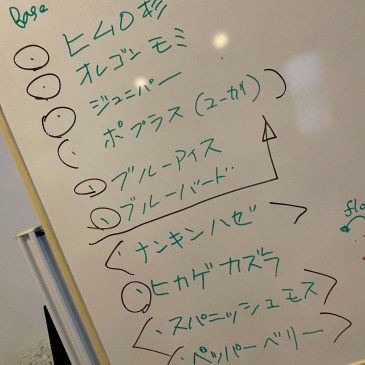 Base
ヒムロ杉
オレゴンモミ
ジュニパー
ポプラス(ユーカリ)
ブルーアイス
ブルーバード
ナンキンハゼ
ヒカゲカズラ
スパニッシュモス
ペッパーベリー
flo